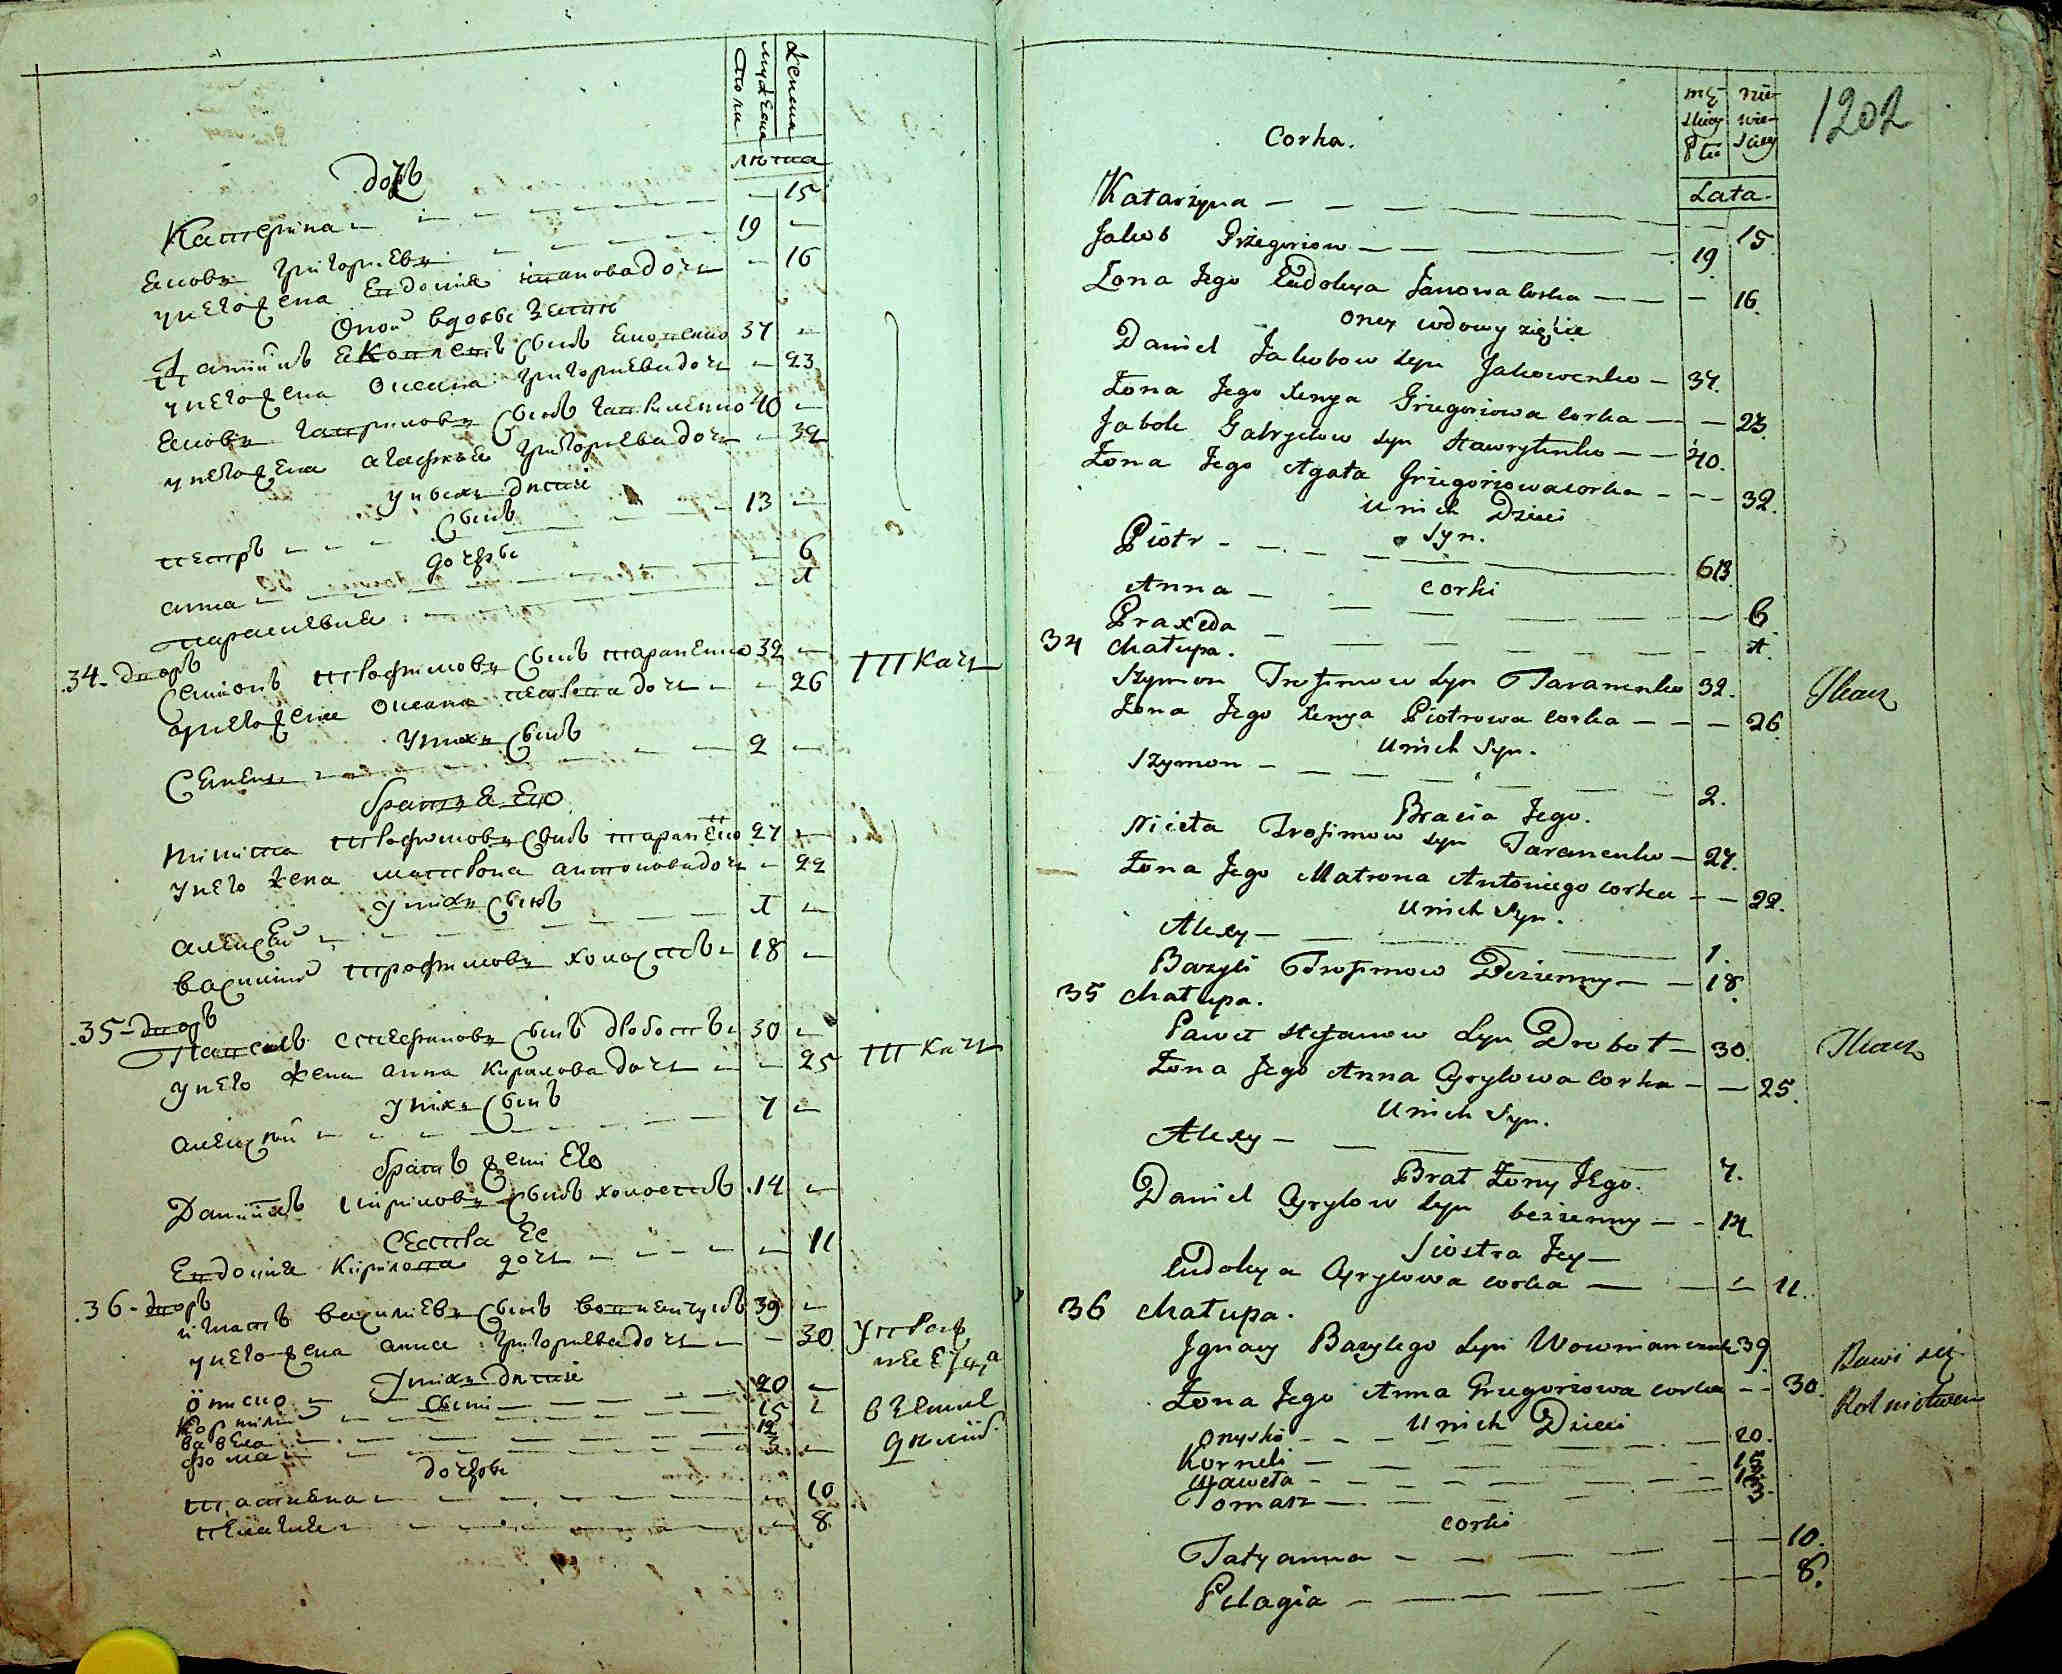 мужеска
женска
поли
лѣта
дочъ
Катерина 15
Яковъ Григориевъ 19
у него жена Евдокия Иванова дочь 16
оной вдовы зять
Даниилъ Яковлевъ сынъ Яковенко 37
у него жена Оксана Григориева дочь 23
Яковъ Гавриловъ сынъ Гавриленко 40
у него жена Агафия Григориева дочь 32
у нихъ дѣти
сынъ
Петръ 13
дочери
Анна 6
Параскевия 1
34 - дворъ
Симонъ Трофимовъ сынъ Тараненко 32 ткачь
у него жена Оксана Петрова дочь 26
у нихъ сынъ
Семенъ 2
братья его
Никита Трофимовъ сынъ Тараненко 27
у него жена Матрона Антонова дочь 22
у нихъ сынъ
Алексей 1
Василий Трофимовъ холостъ 18
35 - дворъ
Павелъ Стефановъ сынъ Дроботъ 30 ткачь
у него жена Анна Кирилова дочь 25
у нихъ сынъ
Алексий 7
братъ жени его
Даниилъ Кириловъ сынъ холостъ 14
сестра ее
Евдокия Кирилова дочь 11
36 - дворъ
Игнатъ Василиевъ сынъ 39
у него жена Анна Григориева дочь 30
у нихъ дѣти
сыни
Ониско 20
Корнилий 15
Вавила 12
Фома 3
дочери
Татиена 10
Пелагия 8
1202
męskiey płci
niewieściey
Lata
Corka.
Katarzyna 15
Jakob Grzegoriow 19.
Żona Jego Eudokya Janowa corka 16.
oney wdowy zięcie
Daniel Jakobow syn Jakowenko 37.
Żona Jego Xenya Grzegoriowa corka 23.
Jakob Gabryelow syn Hawrylenko 40.
Żona Jego Agata Grzegoriowa corka 32.
U nich Dzieci
Syn.
Piotr 13
corki
Anna 6
Praxeda 1.
34 Chałupa.
Szymon Trofimow syn Taranenko 32. Tkacz
Żona Jego Xenya Piotrowa corka 26.
U nich Syn.
Szymon 2.
Bracia Jego.
Niceta Trofimow syn Taranenko 27.
Żona Jego Matrona Antoniego corka 22.
U nich Syn.
Alexy 1.
Bazyli Trofimow Bezżenny 18.
35 Chałupa.
Paweł Stefanow Syn Drobot 30. Tkacz
Żona Jego Anna Cyrylowa corka 25.
U nich Syn.
Alexy 7.
Brat Żony Jego.
Daniel Cyrylow syn bezżenny 14
Siostra Jey
Eudokya Cyrylowa corka 11.
36 Chałupa.
Ignacy Bazylego Syn Wownianczuk 39 Bawi się
Żona Jego Anna Grzegoriowa corka 30. Rolnictwem
U nich Dzieci
Onysko 20.
Korneli 15
Waweła 12
Tomasz 3
corki
Tatyanna 10.
Pelagia 8.